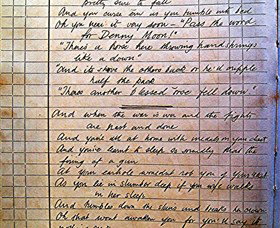 Pretty sure to fall
And you curse him as you tumble and
Oh you hear it very soon "Pass the word
for Denny Moon!"
"Theres a horse here throwing handsprings
like a clown"
"And its shove the others back or he'd
half the pack
"Theres another blessed 'orse fell down"
And when the war is over and the fights
are past and done
And you're all at home with medals on your chest
And you've learnt to sleep so soundly that the
firing of a gun
At your would not you of your rest
As you lie in slumber deep if your wife walks
in her sleep
And tumbles down the stairs and breaks a crown
Oh that wont awaken you for you'll say it